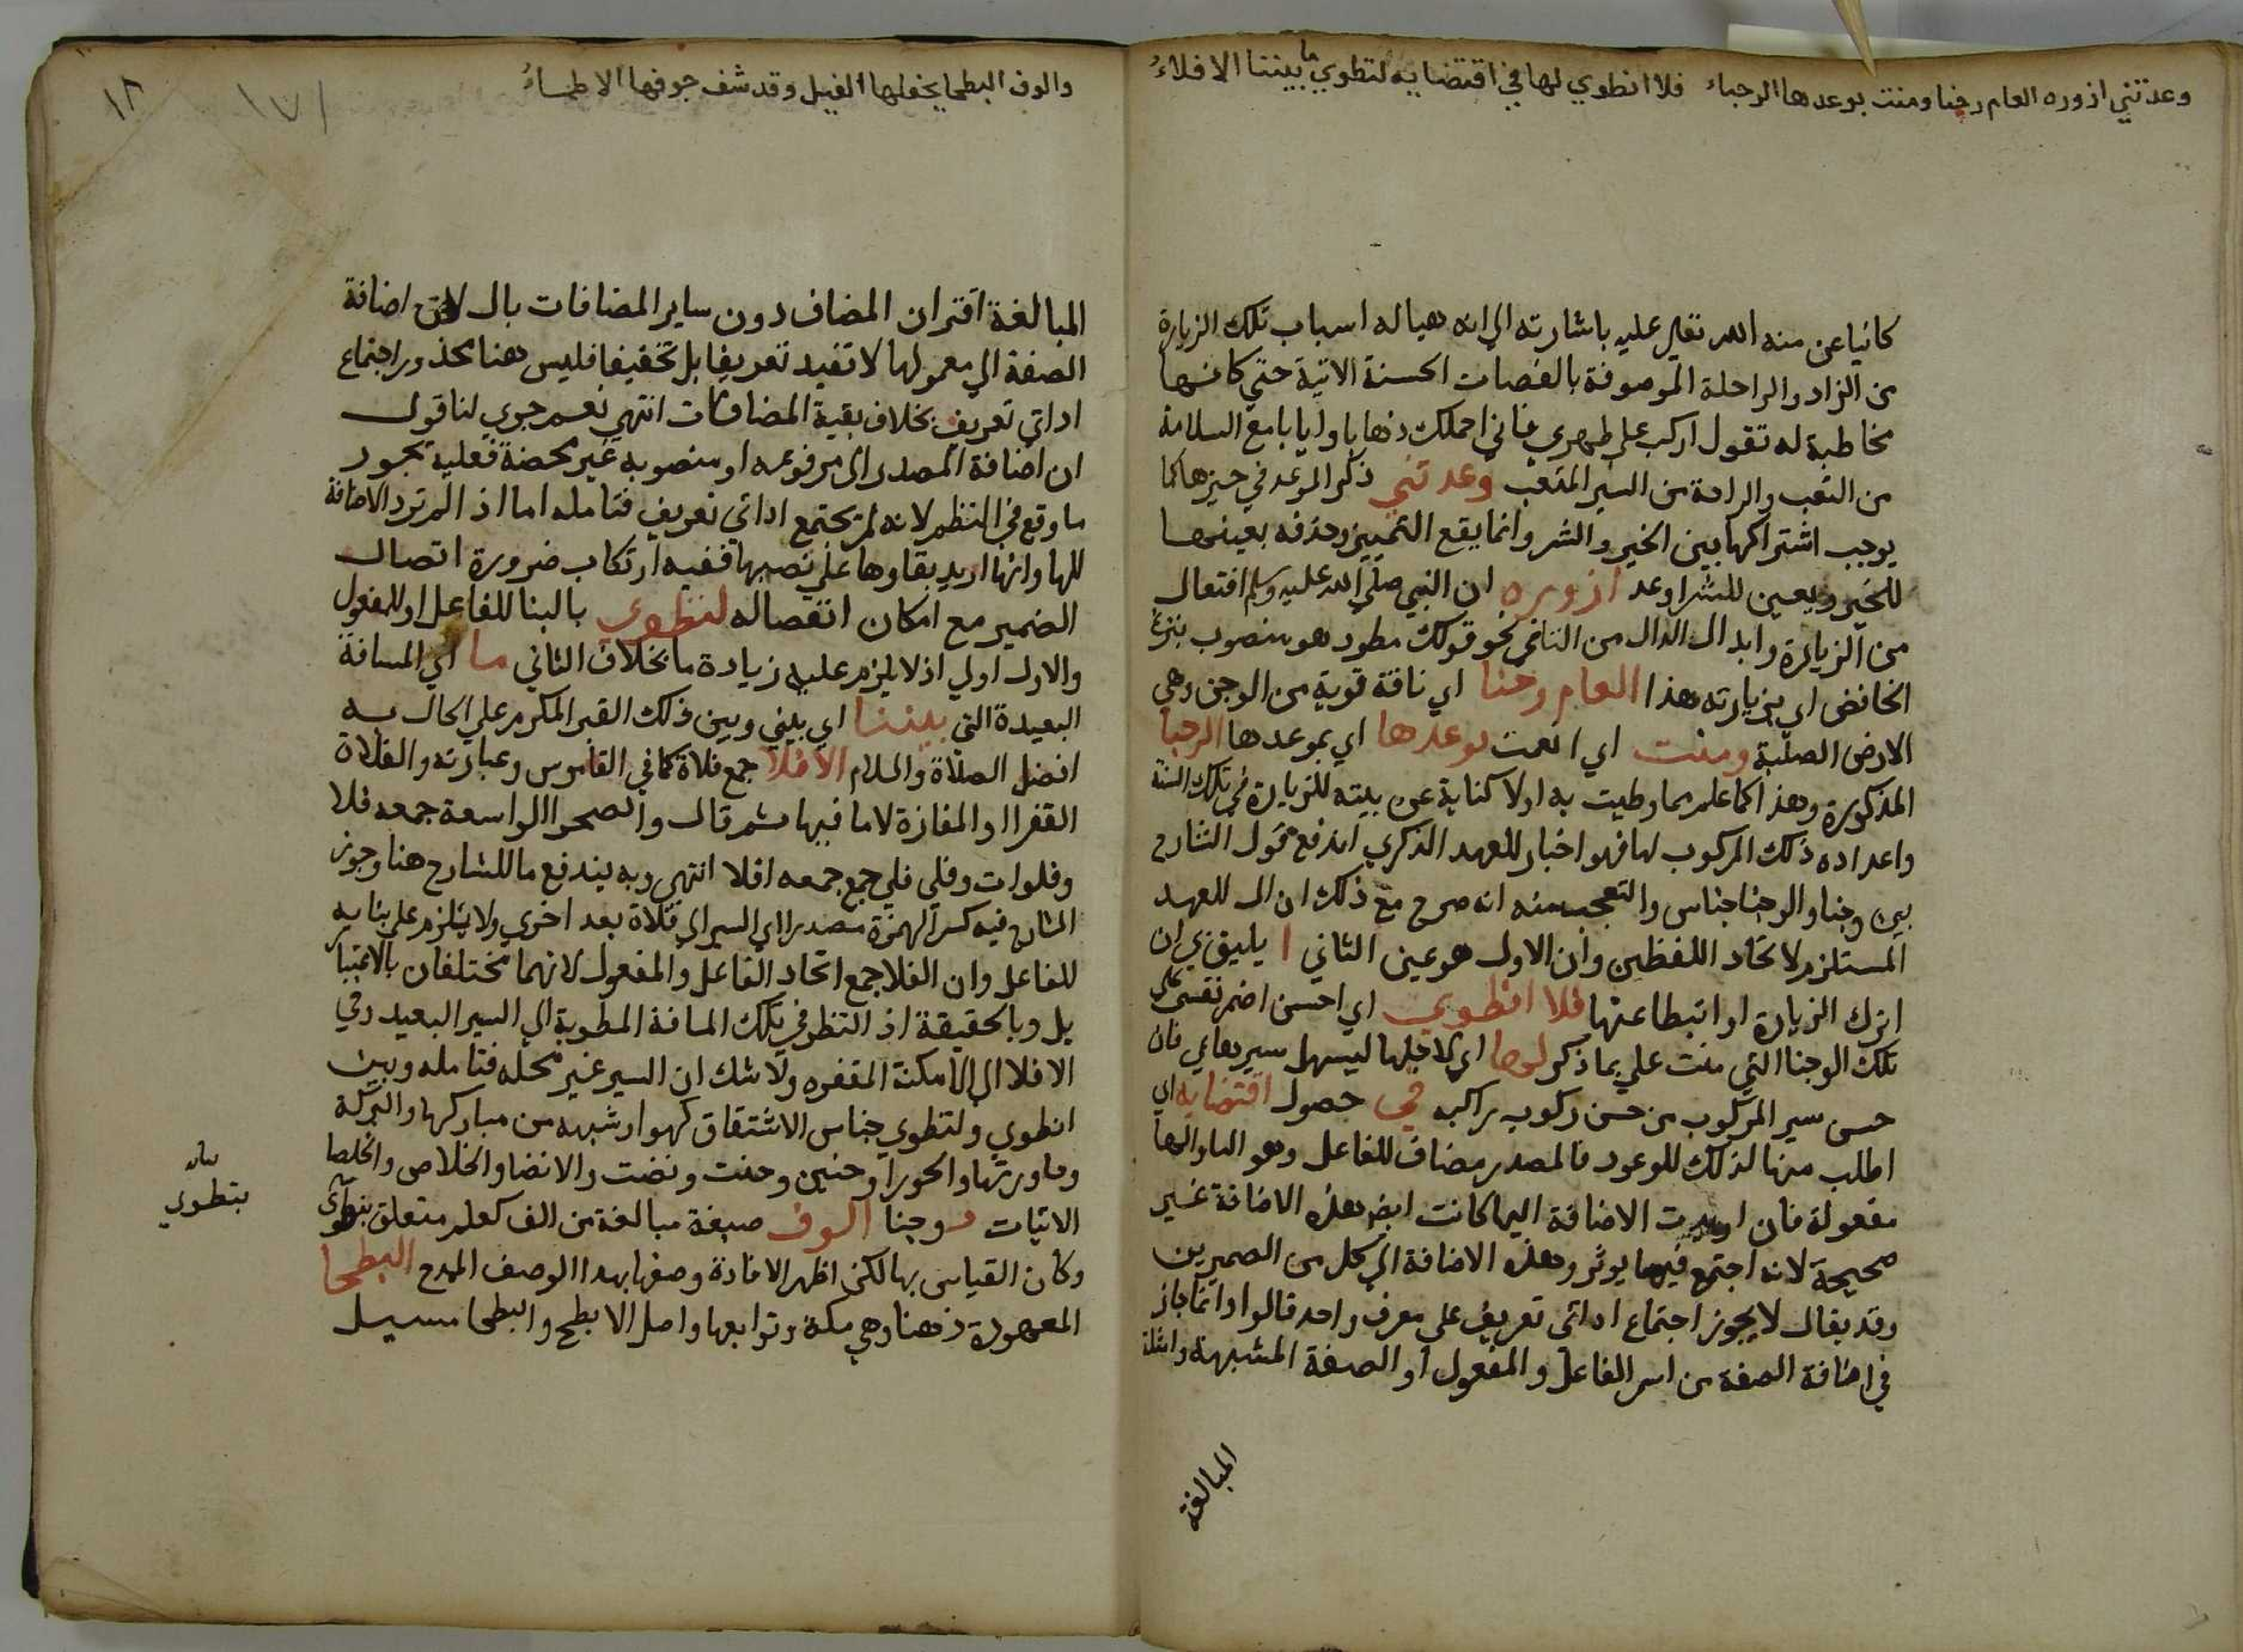 وعدتني ازوره العام وجنا ومنت بوعدها الوجباء فلا انطوي لها في اقتضايه لتطوي ما بيننا الافلاءُ
كانيا عن منه الله تعالي عليه باشارته الي انه هيا له اسباب تلك الزيارة
من الزاد والراحلة الموصوفة بالصفات الحسنة الاتية حتي كانها
مخاطبة له تقول اركب علي ظهري فاني احملك ذهابا وايابا مع السلامة
من التعب والراحة من السير المتعب وعدتني ذكر الوعد في حيزها كما
يوجب اشتراكها بين الخير والشر وانما يقع التمييز وحذفه بعينها
للخير ويعين للشر اوعد ازوره ان النبي صلي الله عليه وسلم افتعال
من الزيارة وابدال الدال من التا في نحو قولك مطرد هو منصوب بنزع
الخافض اي بزيارته هذا العام وجنا اي ناقة قوية من الوجن وهي
الارض الصلبة ومنت اي انعمت بوعدها اي بموعدها الوجبا
المذكورة وهذا كما علم مما وطيت به اولا كناية عن بيته للزيارة في تلك السنة
واعداده ذلك المركوب لها فهو اخبار للعهد الذكري اندفع قول الشارح
بين وجنا والوجنا جناس والتعجب منه انه صرح مع ذلك ان ال للعهد
المستلزم لاتحاد اللفظين وان الاول هو عين الثاني ا يليق بي ان
اترك الزيارة او اتبطا عنها فلا انطوي اي احسن اضم نفسي علي
تلك الوجنا التي منت علي بما ذكر لها اي لاجلها ليسهل سيرها بي فان
حسن سير المركوب من حسن ركوب راكبه في حصول اقتضايه اي
اطلب منها لذلك الموعود فالمصدر مضاف للفاعل وهو اليا والها
مفعوله فان اوردت الاضافة اليها كانت ايض هذه الاضافة غير
صحيحة لانه اجتمع فيها يوثر وهذه الاضافة الي كل من الضميرين
وقد يقال لا يجوز اجتماع اداتي تعريف علي معرف واحد قالوا وانما جاز
في اضافة الصفة من اسم الفاعل والمفعول او الصفة المشبهة وامثلة
المبالغة
والوف البطحا يجفلها النيل وقد شف جوفها الاظماءُ
١٢
١٧١
المبالغة اقتران المضاف دون ساير المضافات بال لان اضافة
الصفة الي معمولها لا تفيد تعريفا بل تخفيفا فليس هنا محذور اجتماع
اداتي تعريف بخلاف بقية المضافات انتهي نعم جري لنا قول
ان اضافة المصدر الي مرفوعه او منصوبه غير محضة فعليه يجوز
ما وقع في النظم لانه لم يجتمع اداتي تعريف فتامله اما اذا لم ترد الاضافة
للها وانما اريد بقاوها علي نصبها ففيه ارتكاب ضرورة اتصال
الضمير مع امكان انفصاله لتطوي بالبنا للفاعل او للمفعول
والاول اولي اذ لا يلزم عليه زيادة ما بخلاف الثاني ما اي المسافة
البعيدة التي بيننا اي بيني وبين ذلك القبر المكرم علي الحال به
افضل الصلاة والسلام الافلا جمع فلاة كما في القاموس وعبارته والفلاة
القفر او المفازة لا ما فيها ثم قال والصحرا الواسعة جمعه فلا
وفلوات وفلي فلي جمع جمعه افلا انتهي وبه يندفع ما للشارح هنا وجوز
الشارح فيه كسر الهمزة مصدرا اي السير الي فلاة بعد اخري ولا يلزم علي بنايه
للفاعل وان الفلا جمع اتحاد الفاعل والمفعول لانهما مختلفان بالاعتبار
بل وبالحقيقة اذ النظر في تلك المسافة المطوية الي السير البعيد وفي
الافلا الي الامكنة المقفره ولا شك ان السير غير محله فتامله وبين
انطوي ولتطوي جناس الاشتقاق كهو او شبهه من مباركها والبركة
وماورتها والحورا وحنين وحنت ونضت والانضا والخلاص والخلصا
الاتيات ووجنا الوف صيغة مبالغة من الف كعلم متعلق بتطوي
وكان القياس بها لكن اظهر الافادة وصفها بهذا الوصف المدح البطحا
المعهودة ذهنا وهي مكة وتوابعها واصل الابطح والبطحا مسيل
بيان
بتطوي